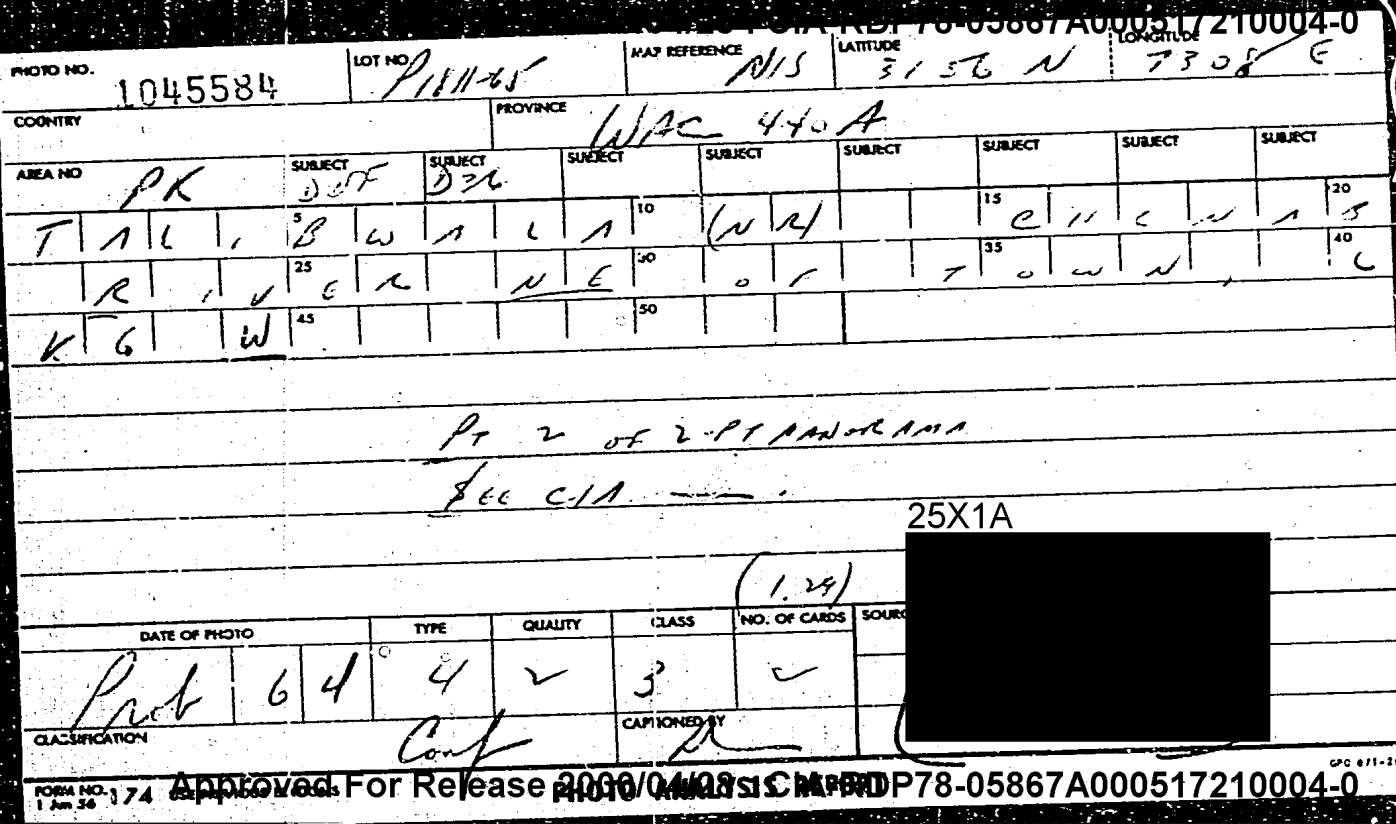 CIA-RDP78-05867A000517210004-0
PHOTO NO. 1045584 LOT NO P1811-65 MAP REFERENCE NIS LATITUDE 31 56 N LONGITUDE 73 08 E
COUNTRY PROVINCE WAC 440A
AREA NO PK SUBJECT SUBJECT D36 SUBJECT SUBJECT SUBJECT SUBJECT SUBJECT SUBJECT
TALIBWALA (NR) CHENAB
RIVER NE OF TOWN, L
KG W
5 10 15 20 25 30 35 40 45 50
PT 2 OF 2-PT PANORAMA
SEE CIA ——.
25X1A
(1.24)
DATE OF PHOTO TYPE QUALITY CLASS NO. OF CARDS
Prob 64 4 2 3 2
CLASSIFICATION Conf CAPTIONED BY
FORM NO. 1 Jun 56 174 PHOTO ANALYSIS
Approved For Release 2000/04/08 : CIA-RDP78-05867A000517210004-0